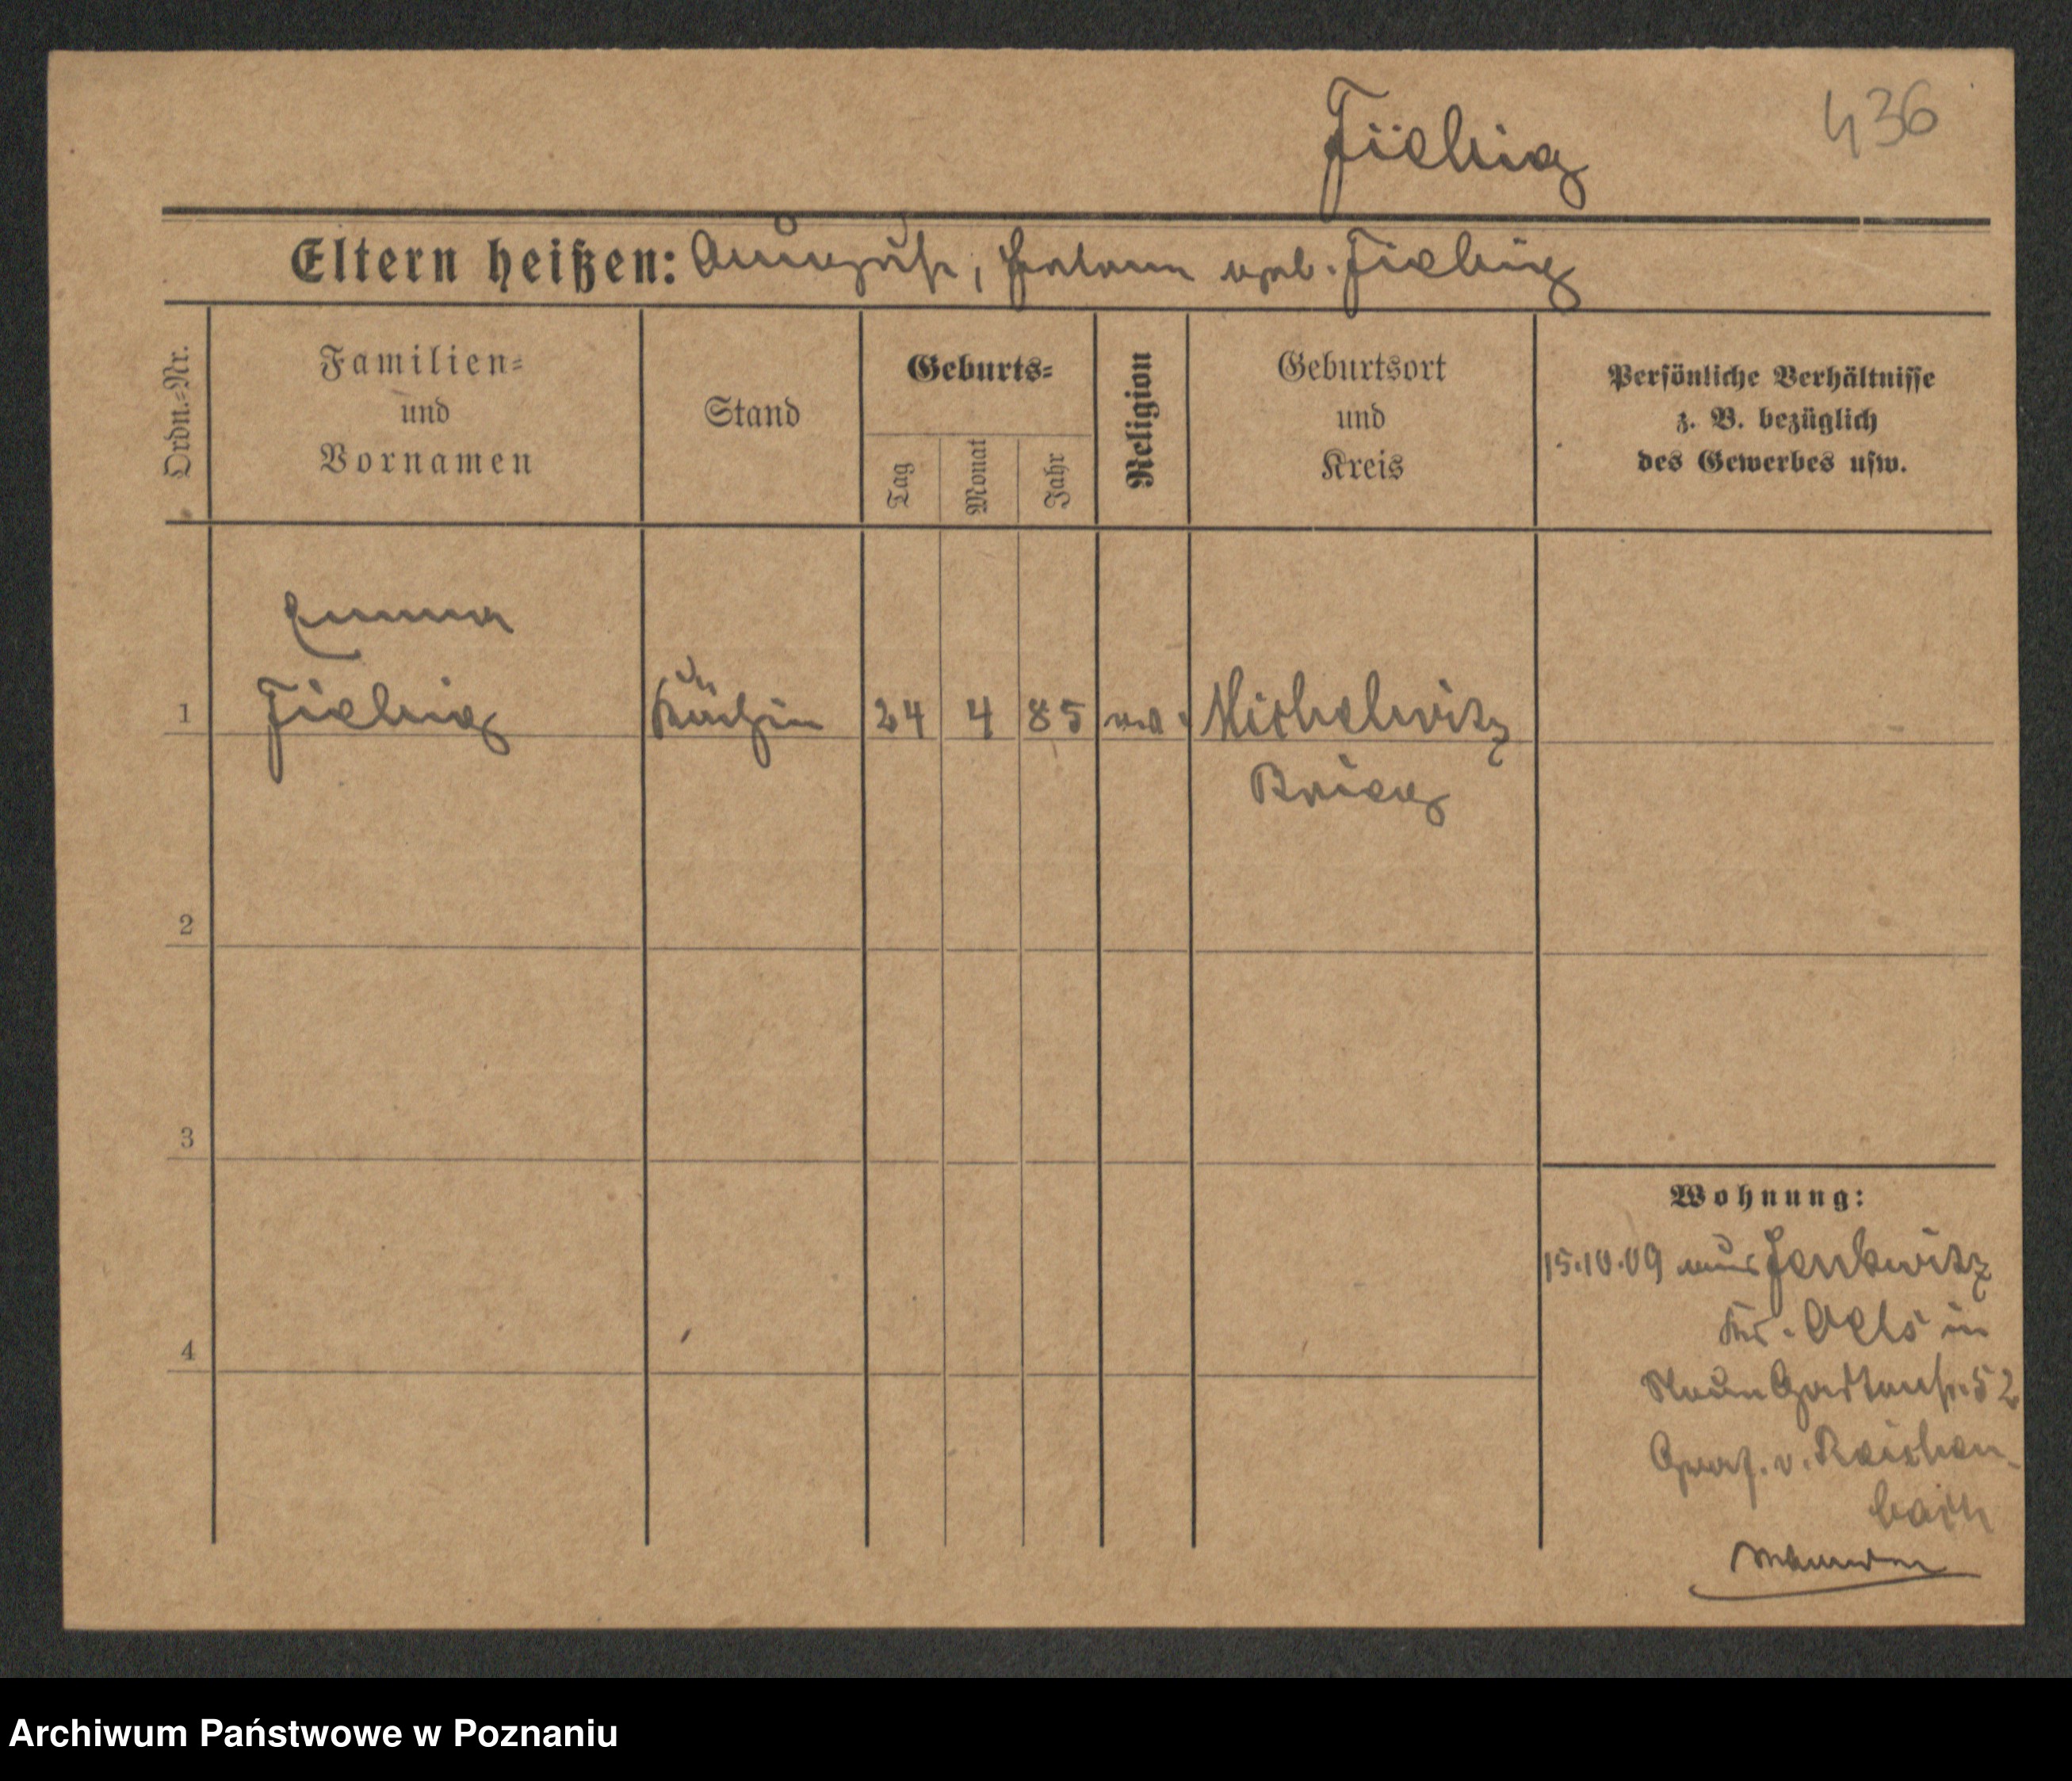 Fiebig
436
Eltern heißen: August, Helene geb. Fiebig
Ordn.-Nr.
Familien-
und
Vornamen
Stand
Geburts-
Tag
Monat
Jahr
Religion
Geburtsort
und
Kreis
Persönliche Verhältnisse
z. B. bezüglich
des Gewerbes usw.
Emma
1 Fiebig Köchin 24 4 85 ev. Michelwitz
Brieg
2
3
4
Wohnung:
15.10.09 aus Jenkwitz
Kr. Oels in
Neue Gartenstr. 52
Graf. v. Reichen-
bach
Archiwum Państwowe w Poznaniu